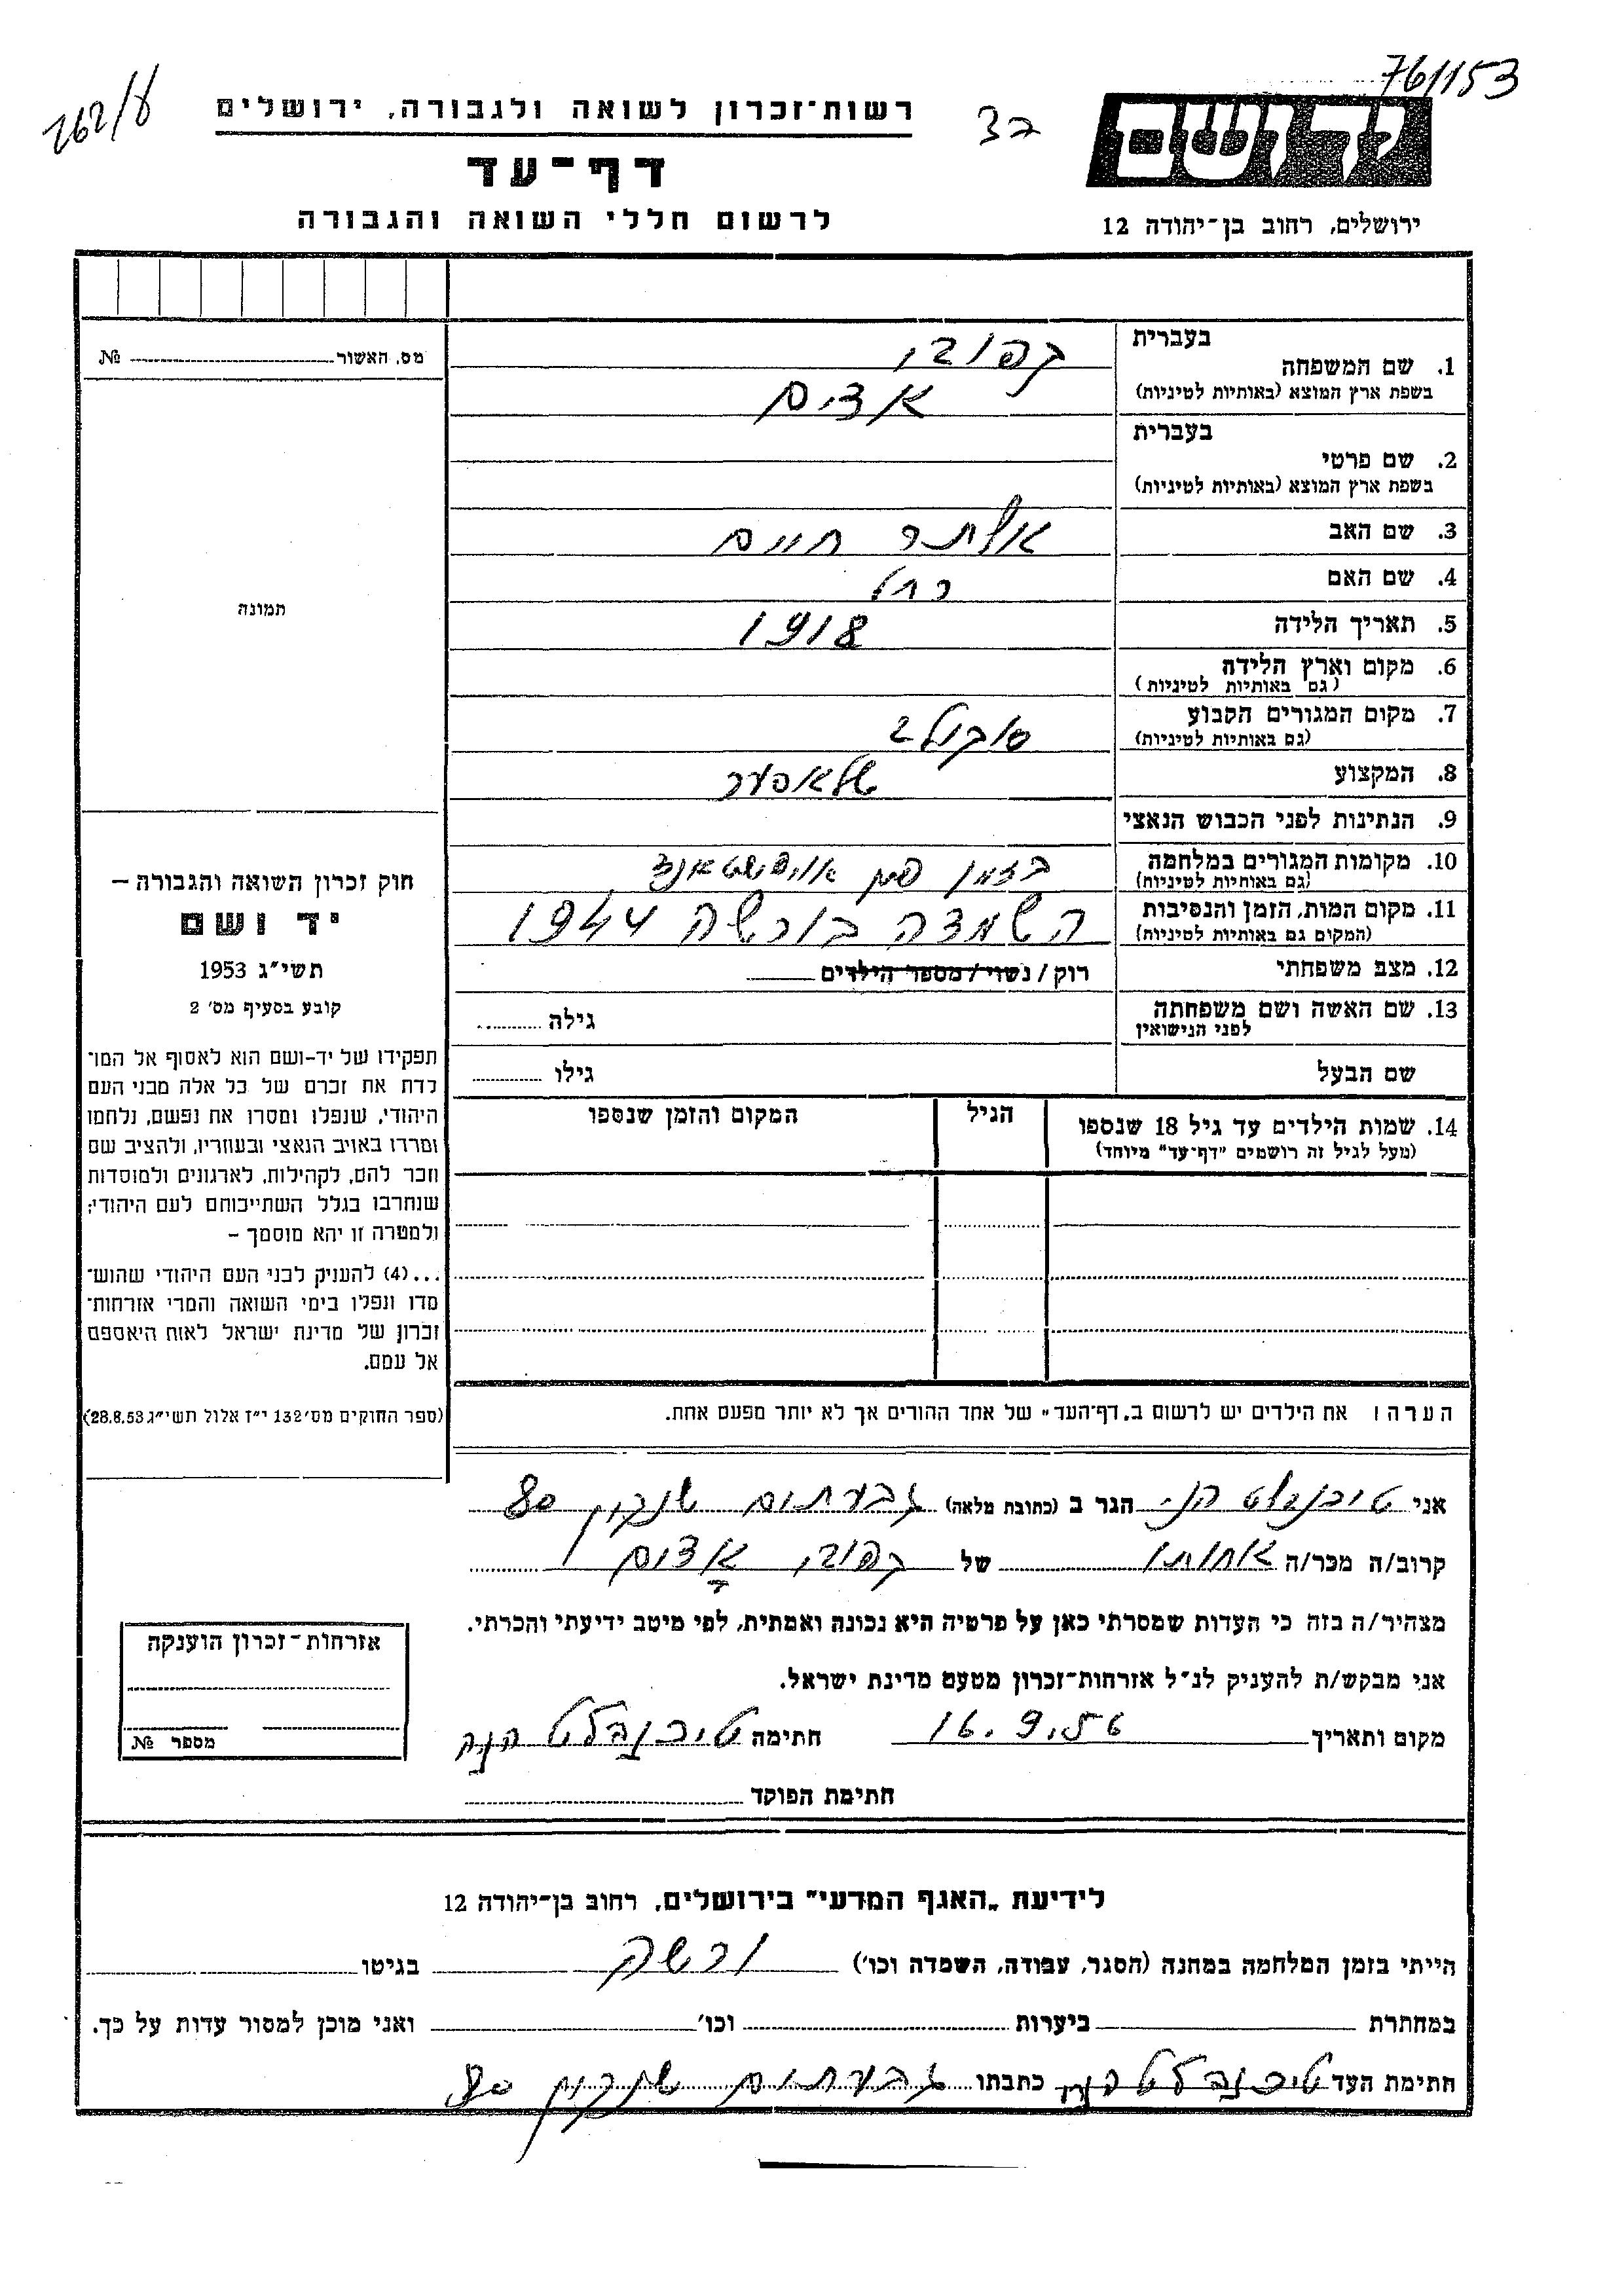 761153
262/8
37
רשות־זכרון לשואה ולגבורה, ירושלים
דף־עד
לרשום חללי השואה והגבורה
יד ושם
ירושלים, רחוב בן־יהודה 12
בעברית
1. שם המשפחה
בשפת ארץ המוצא (באותיות לטיניות)
אדים
בעברית
2. שם פרטי
בשפת ארץ המוצא (באותיות לטיניות)
3. שם האב אלתר חיים
4. שם האם רחל
5. תאריך הלידה 1918
6. מקום וארץ הלידה
(גם באותיות לטיניות)
7. מקום המגורים הקבוע סוקולב
(גם באותיות לטיניות)
8. המקצוע שלאסער
9. הנתינות לפני הכבוש הנאצי
10. מקומות המגורים במלחמה בזמן פון אויפשטאנד
(גם באותיות לטיניות)
11. מקום המות, הזמן והנסיבות השמדה בורשה 1944
(המקום גם באותיות לטיניות)
12. מצב משפחתי רוק / נשוי / מספר הילדים
13. שם האשה ושם משפחתה גילה
לפני הנישואין
שם הבעל גילו
14. שמות הילדים עד גיל 18 שנספו הגיל המקום והזמן שנספו
(מעל לגיל זה רושמים "דף־עד" מיוחד)
הערה: את הילדים יש לרשום ב„דף־העד" של אחד ההורים אך לא יותר מפעם אחת.
מס. האשור №
תמונה
חוק זכרון השואה והגבורה –
יד ושם
תשי״ג 1953
קובע בסעיף מס׳ 2
תפקידו של יד-ושם הוא לאסוף אל המו־
לדת את זכרם של כל אלה מבני העם
היהודי, שנפלו ומסרו את נפשם, נלחמו
ומרדו באויב הנאצי ובעוזריו, ולהציב שם
וזכר להם, לקהילות, לארגונים ולמוסדות
שנחרבו בגלל השתייכותם לעם היהודי;
ולמטרה זו יהא מוסמך –
...(4) להעניק לבני העם היהודי שהוש־
מדו ונפלו בימי השואה והמרי אזרחות־
זכרון של מדינת ישראל לאות היאספם
אל עמם.
(ספר החוקים מס׳ 132 י״ז אלול תשי״ג 28.8.53)
אני הגר ב (כתובת מלאה) גבעתים שנקין 80
קרוב/ה מכר/ה אחותו של אדים
מצהיר/ה בזה כי העדות שמסרתי כאן על פרטיה היא נכונה ואמתית, לפי מיטב ידיעתי והכרתי.
אני מבקש/ת להעניק לנ״ל אזרחות־זכרון מטעם מדינת ישראל.
מקום ותאריך 16.9.56 חתימה
חתימת הפוקד
אזרחות־זכרון הוענקה
מספר №
לידיעת „האגף המדעי" בירושלים, רחוב בן־יהודה 12
הייתי בזמן המלחמה במחנה (הסגר, עבודה, השמדה וכו׳) ורשה בגיטו
במחתרת ביערות וכו׳ ואני מוכן למסור עדות על כך.
חתימת העד כתבתו גבעתים שנקין 80